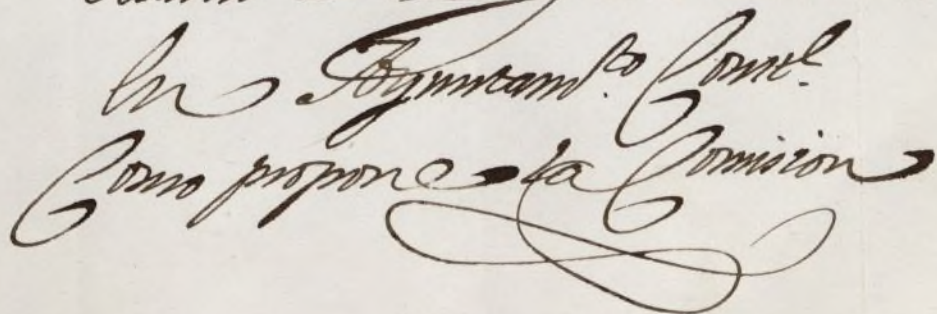 En Ayuntam.to Const.l
Como propone la Comision